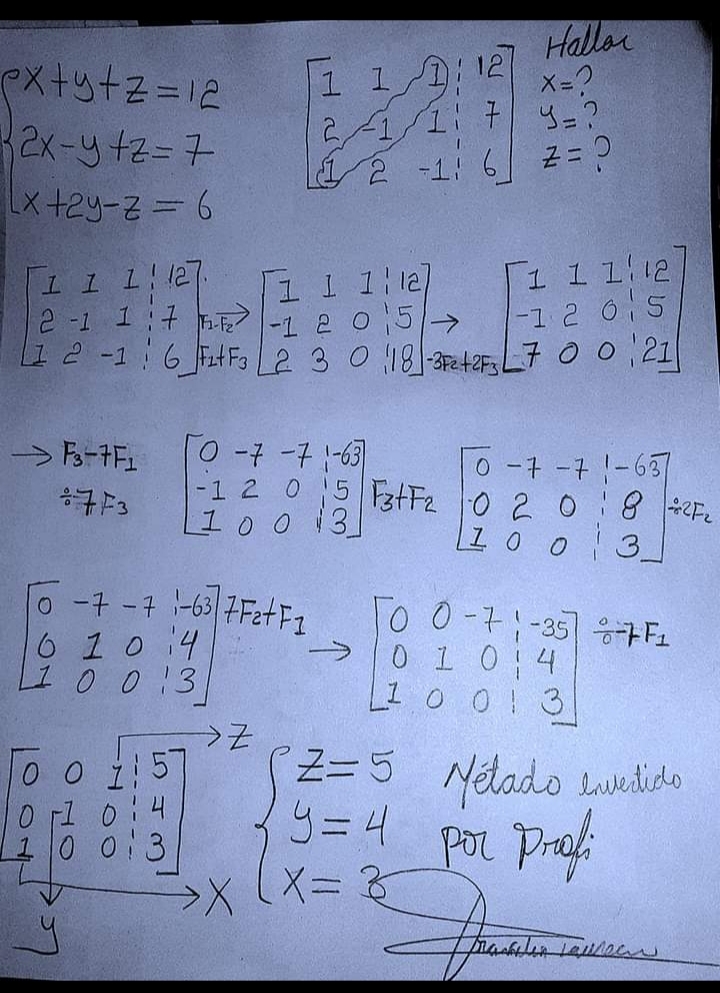 Hallar
x+y+z=12
2x-y+z=7
x+2y-z=6
1 1 1 | 12
2 -1 1 | 7
1 2 -1 | 6
x=?
y=?
z=?
1 1 1 | 12
2 -1 1 | 7
1 2 -1 | 6
F1-F2
F1+F3
→
1 1 1 | 12
-1 2 0 | 5
2 3 0 | 18
→
-3F2+2F3
1 1 1 | 12
-1 2 0 | 5
7 0 0 | 21
→ F3-7F1
÷7F3
0 -7 -7 | -63
-1 2 0 | 5
1 0 0 | 3
F3+F2
0 -7 -7 | -63
0 2 0 | 8
1 0 0 | 3
÷2F2
0 -7 -7 | -63
0 1 0 | 4
1 0 0 | 3
7F2+F1
→
0 0 -7 | -35
0 1 0 | 4
1 0 0 | 3
÷-7F1
0 0 1 | 5
0 1 0 | 4
1 0 0 | 3
→ Z
→ X
y
Z=5
y=4
X=3
Métado invertido
por Profi